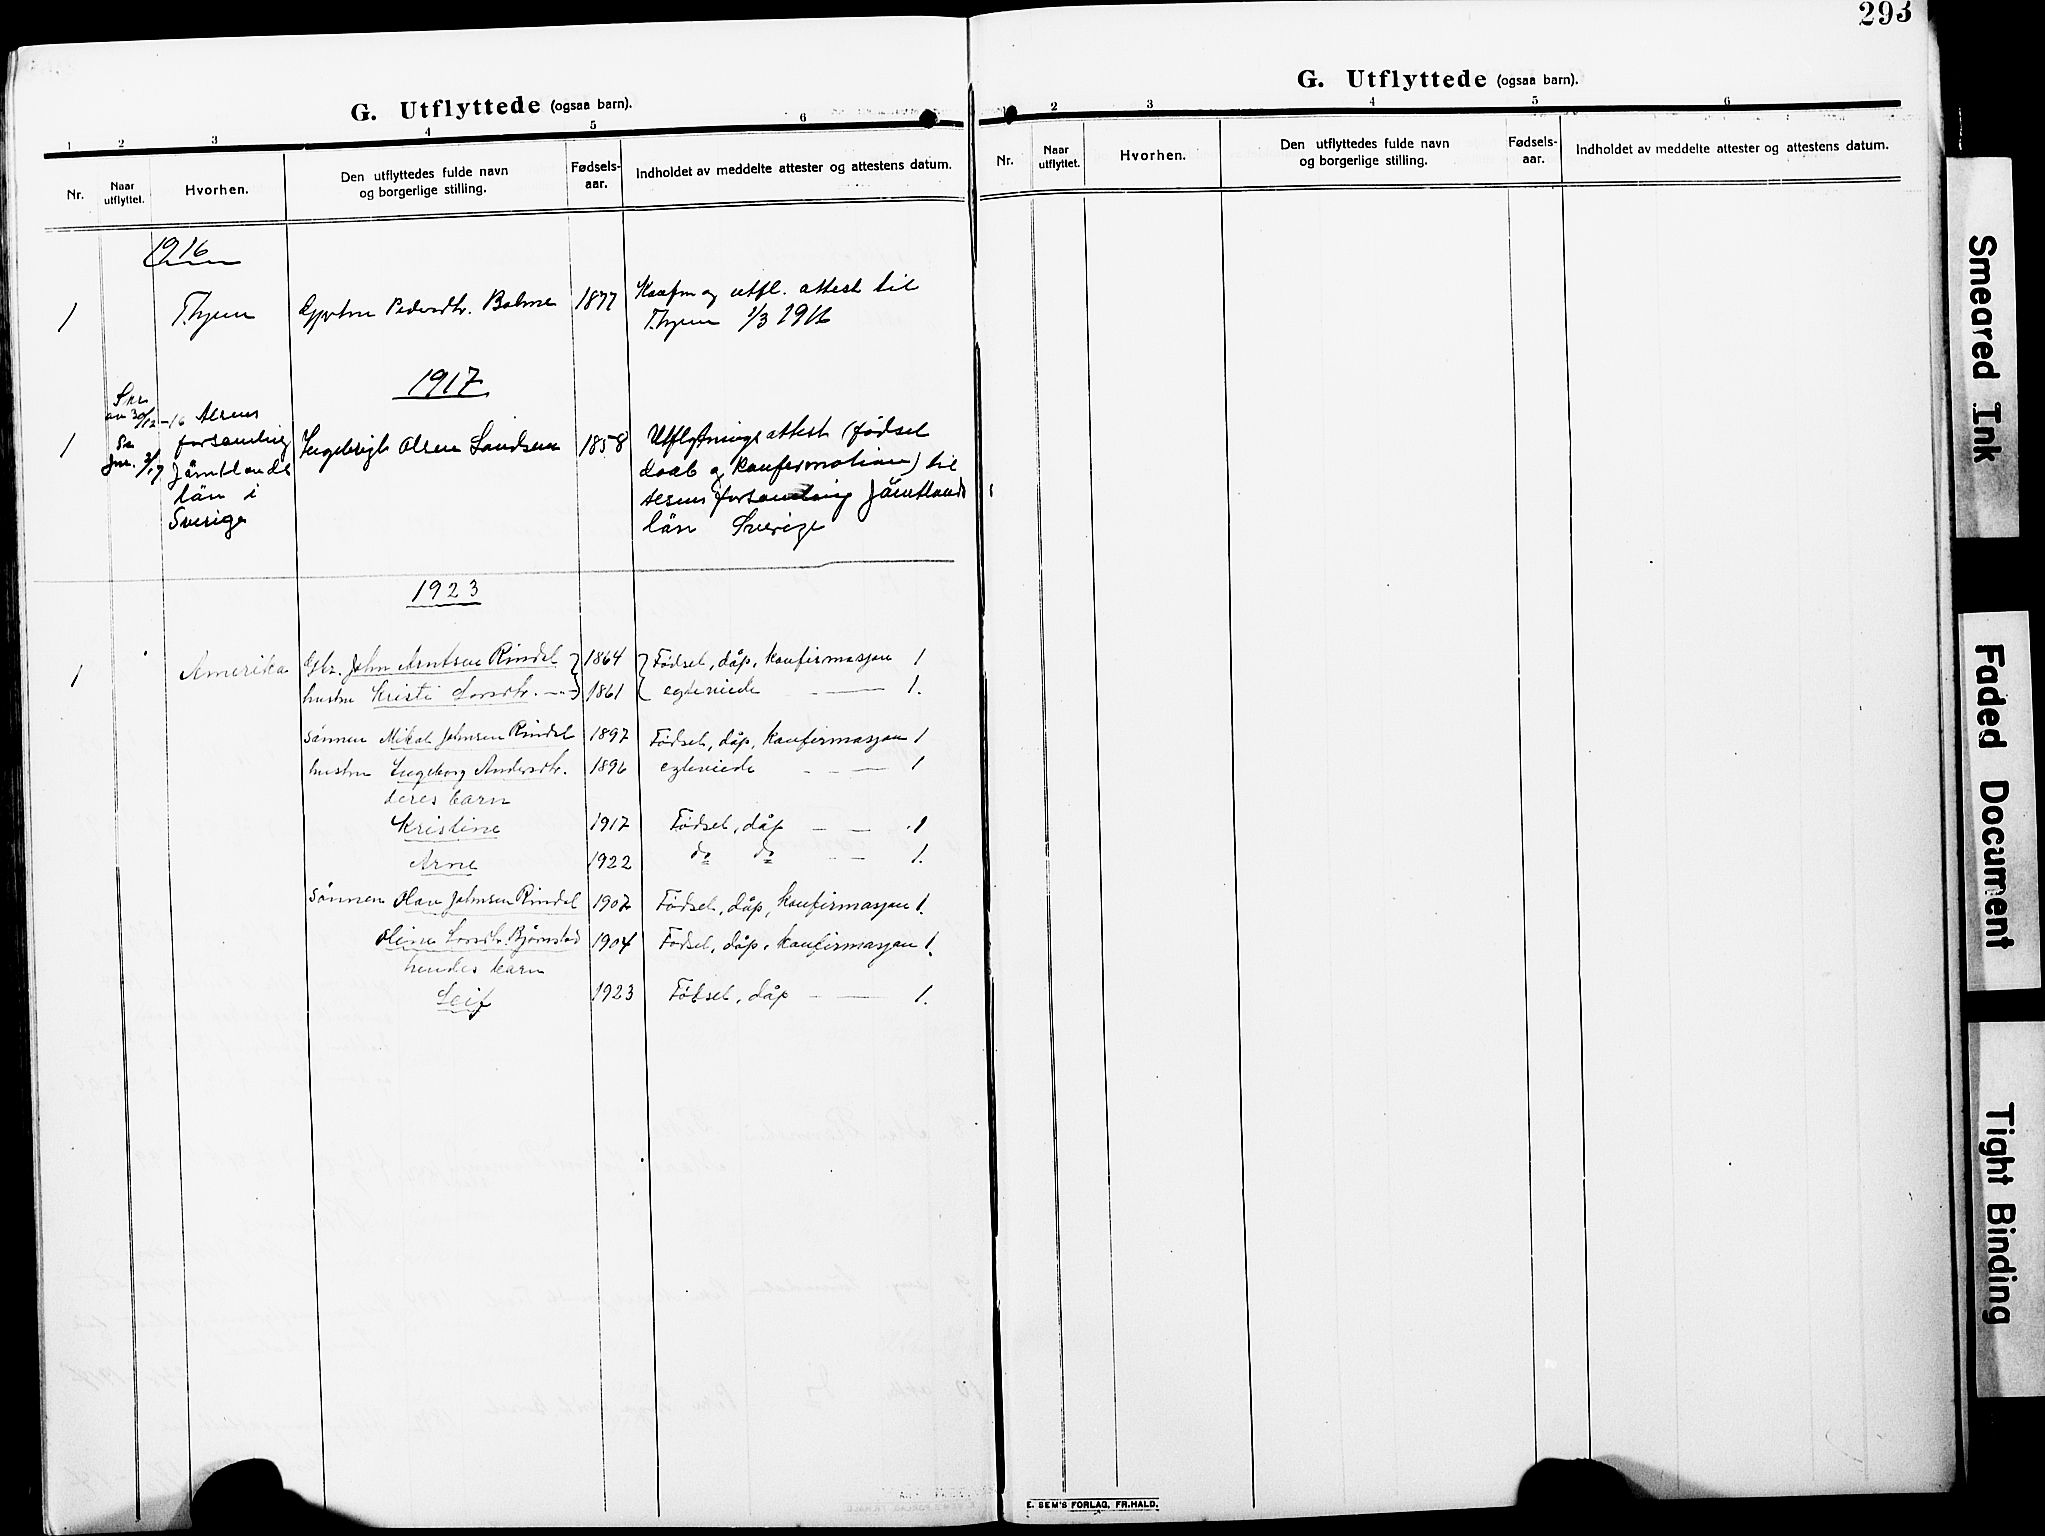 293
G. Utflyttede (ogsaa barn).
1 2 3 4 5 6
Nr. Naar utflyttet. Hvorhen. Den utflyttedes fulde navn og borgerlige stilling. Fødselsaar. Indholdet av meddelte attester og attestens datum.
1916
1 Pedersdtr. 1877 utfl. attest til
1/3 1916
1917
1 30/12 -16 forsamling Jämtlands län i Sverige
Ingebrigt Olsen 1858 Utflytningsattest (fødsel
daab og konfirmation) til
forsamling Jämtlands
län Sverige
1923
1 Amerika Gbr. John Arntsen Rindal 1864 Fødsel, dåp, konfirmasjon 1
hustru Kristi Larsdtr. — 1861 egteviede — 1.
sønnen Mikal Johnsen Rindal 1897 Fødsel, dåp, konfirmasjon 1
hustru Ingeborg Andersdtr. 1896 egteviede — 1
deres barn
Kristine 1917 Fødsel, dåp — — 1
Arne 1922 do do — 1.
sønnen Olav Johnsen Rindal 1907 Fødsel, dåp, konfirmasjon 1.
Oline Larsdtr. Bjørnstad 1904 Fødsel, dåp, konfirmasjon 1.
hendes barn
Leif 1923 Fødsel, dåp — — 1.
G. Utflyttede (ogsaa barn).
2 3 4 5 6
Nr. Naar utflyttet. Hvorhen. Den utflyttedes fulde navn og borgerlige stilling. Fødselsaar. Indholdet av meddelte attester og attestens datum.
E. SEM'S FORLAG, FR.HALD.
Smeared Ink
Faded Document
Tight Binding